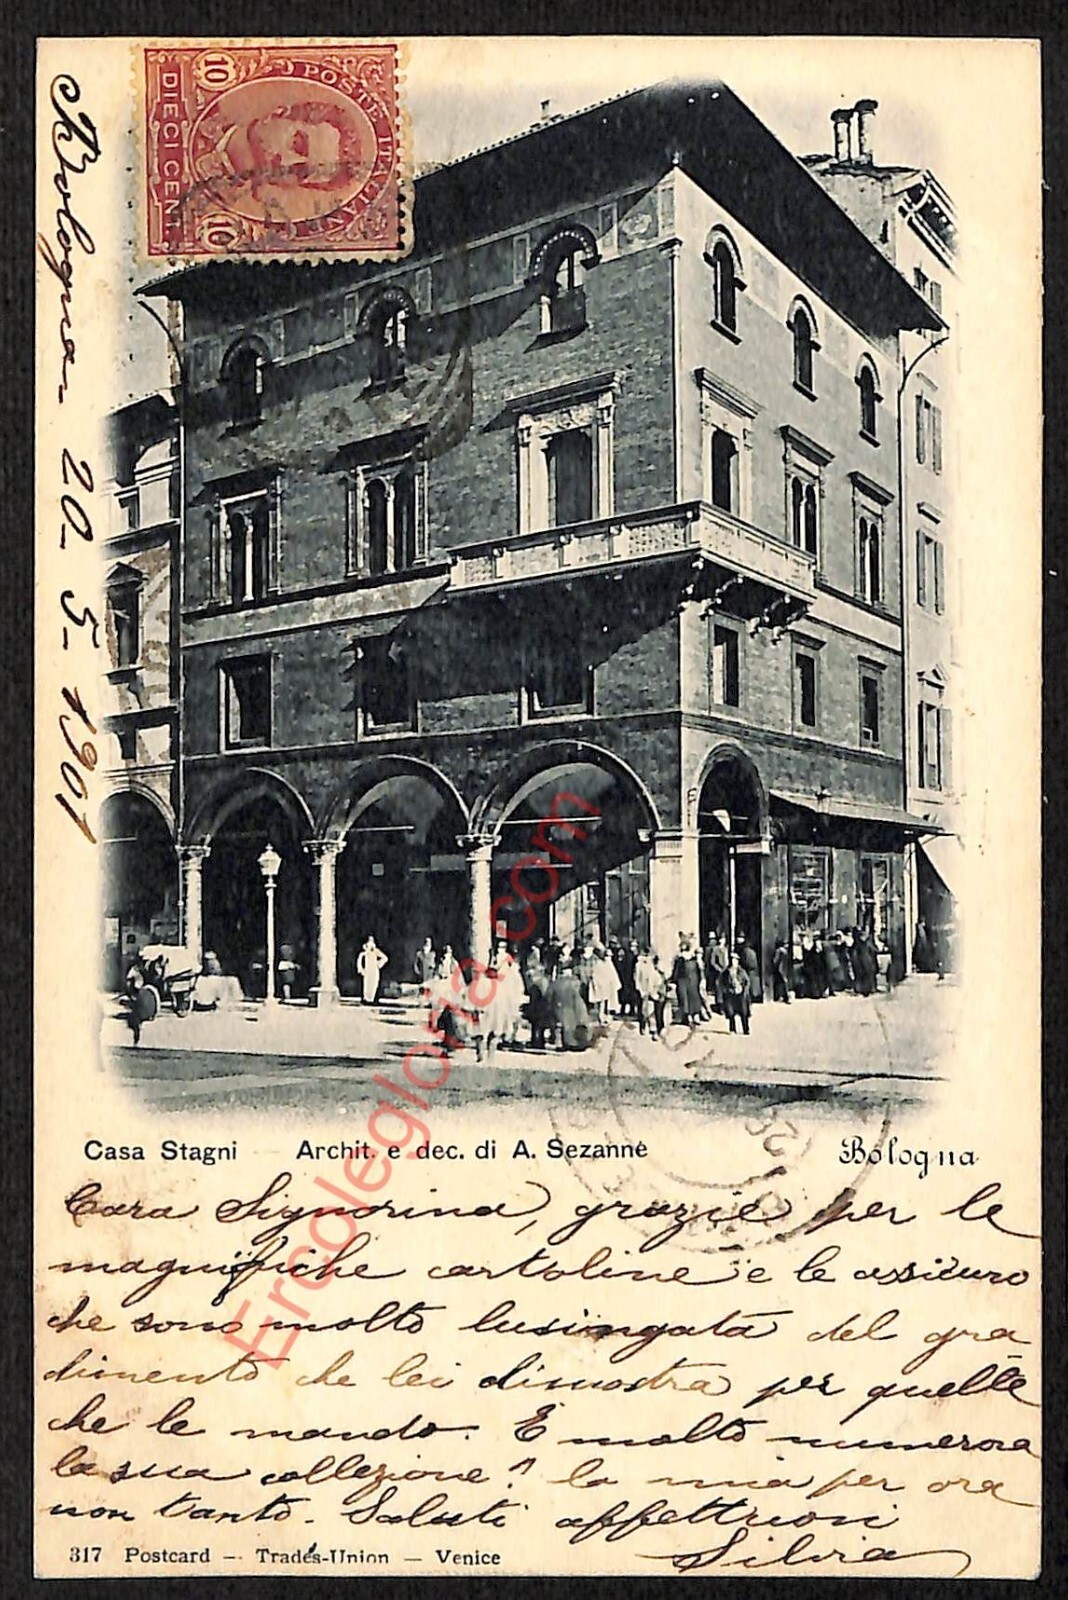 10 POSTE ITALIANE 10
DIECI CENT.
Bologna - 20 - 5 - 1901
Casa Stagni Archit. e dec. di A. Sezanne Bologna
Cara Signorina, grazie per le
magnifiche cartoline e le assicuro
che sono molto lusingata del gra
dimento che lei dimostra per quelle
che le mando. È molto numerosa
la sua collezione? la mia per ora
non tanto. Saluti affettuosi
Silvia
317 Postcard — Tradés-Union — Venice
Ercolegloria.com